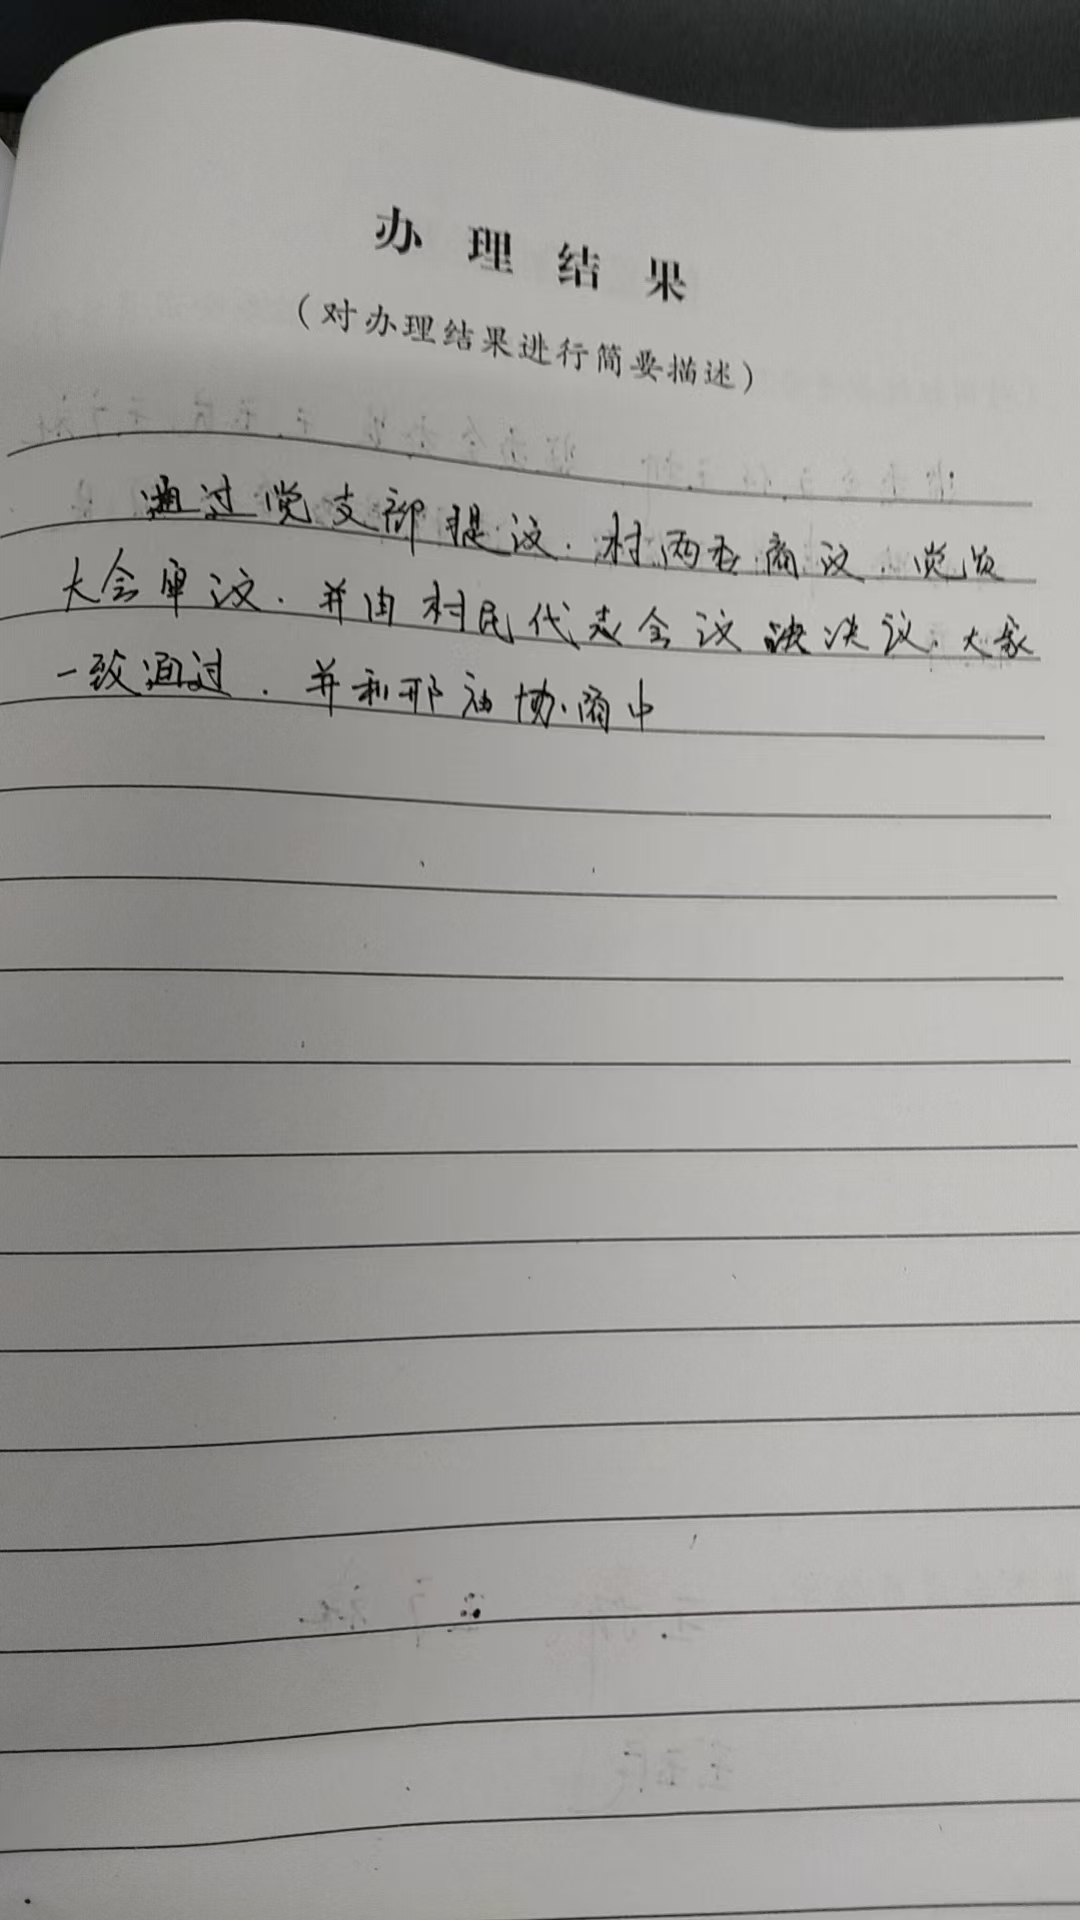 办理结果
（对办理结果进行简要描述）
通过党支部提议、村两委商议、党员
大会审议、并由村民代表会议决决议、大家
一致通过、并和邢庙协商中